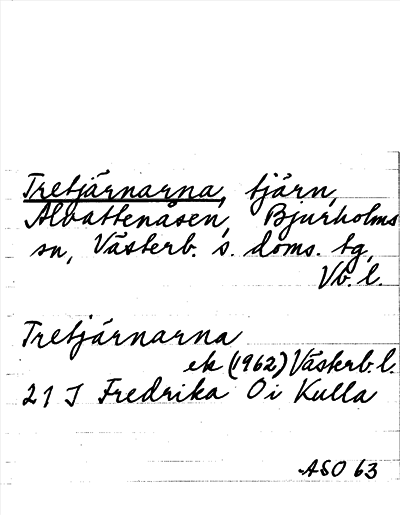 Tretjärnarna, tjärn,
Alvattenåsen, Bjurholms
sn, Västerb. s. doms. tg,
Vb. l.
Tretjärnarna
ek (1962) Västerb. l.
21 J Fredrika Öi Kulla
ASO 63